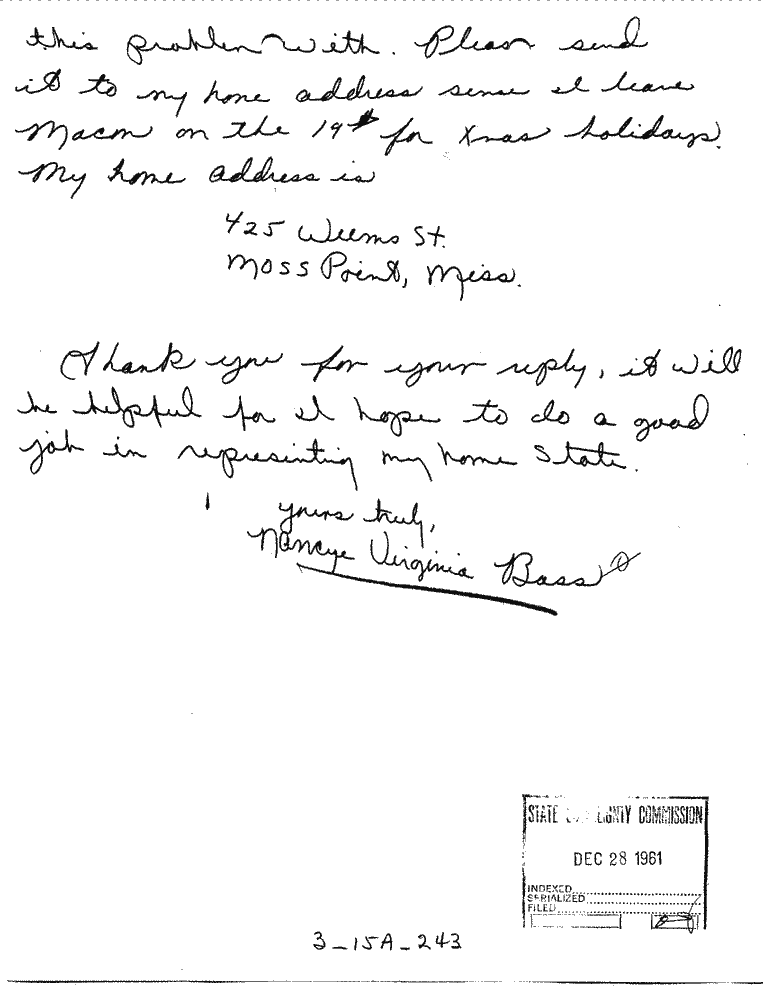 this problem with. Please send
it to my home address sense I leave
Macon on the 19th for Xmas holidays.
My home address is
425 Weems St.
Moss Point, Miss.
Thank you for your reply, it will
be helpful for I hope to do a good
job in representing my home State.
yours truly,
Nancye Virginia Bass
STATE COMMISSION
DEC 28 1961
INDEXED
SERIALIZED
FILED
3-15A-243